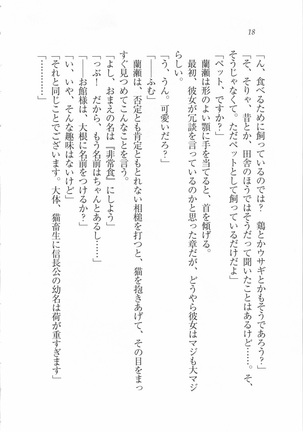 18
「ん、食べるために飼っているのでは？　鶏とかウサギとかもそうであろう？」
「そ、そりゃ、昔とか、田舎のほうではそうだって聞いたことはあるけど……。そ、
そうじゃなくて。ただペットとして飼っているだけだよ」
「ペット、ですか？」
蘭瀬は形のよい顎に手を当てると、首を傾げる。
最初、彼女が冗談を言っているのかと思った章だが、どうやら彼女はマジも大マジ
らしい。
「う、うん。可愛いだろ？」
「――ふむ」
蘭瀬は、否定とも肯定ともとれない相槌を打つと、猫を抱きあげて、その目をまっ
すぐ見つめてこんなことを言う。
「よし、おまえの名は『非常食』にしよう」
「っぷ――！　だから、もう名前はちゃんとあるし……」
「――お館様は、大根に名前をつけるか？」
「い、いや、そんな趣味はないけど」
「それと同じことでございます。大体、猫畜生に信長公の幼名は荷が重すぎます」
「…………」